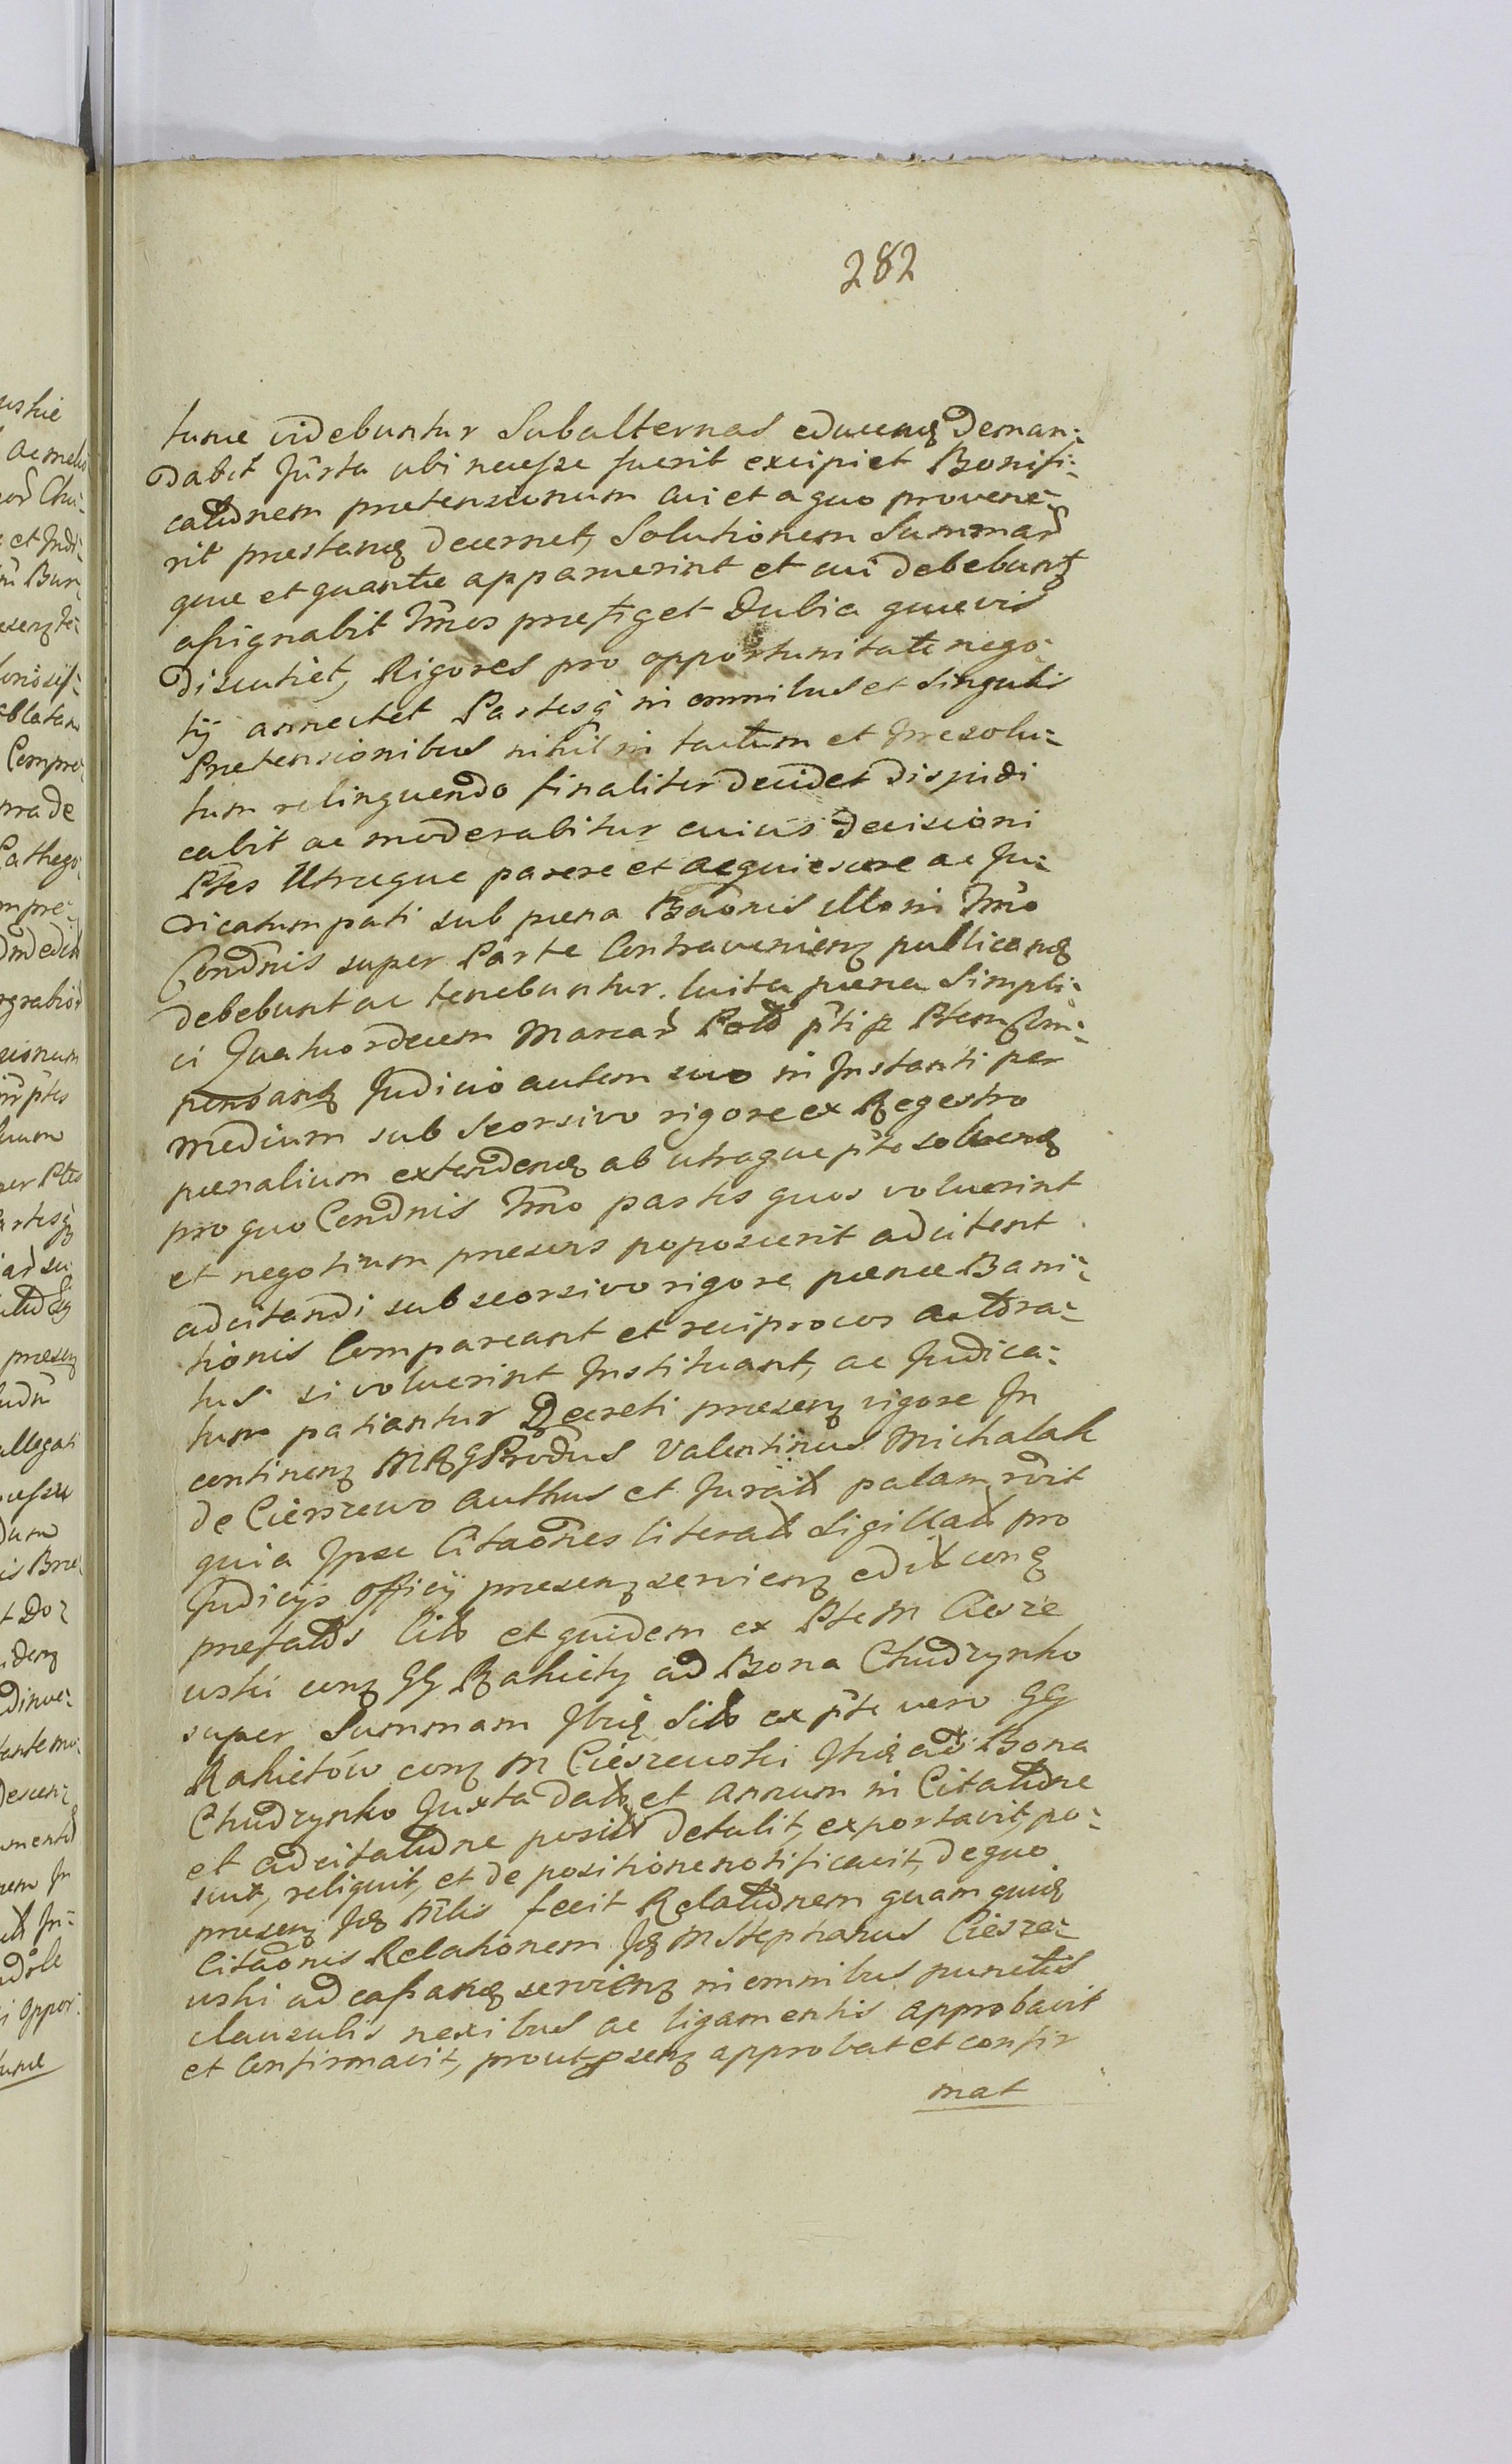 282
tunae videbuntur Subalternas educenȝ deman:
dabit Jurta ubi necesse fuerit excipiet Bonifi:
catidnem praetensionum cui et a quo provene:
rit praestanȝ decernet, Solutionem Summar
quae et quantae apparuerint et cui debebunȝ
assignabit Tmos praefiget Dubia quaevis
discutiet, Rigores pro opportunitate nego:
tij annectet Partesq in omnibus et singulis
Praetensionibus nihil in tactum et Irresolu:
tum relinquendo finaliter decidet dijudi
cabit ac moderabitur cuius decisioni
Ptes Utraeque parere et acquiescere ac Ju:
dicatum pati sub paena Baonis illo in Tmo
Condnis super Parte Contravenienȝ publicanȝ
debebunt ac tenebuntur. luita paena Simpli:
ci Quatuordecem Marcar Pold pti Ptem Im:
pendanȝ Judicio autem suo in Instanti per
medium sub seorsivo rigore ex Regestro
paenalium extendenȝ ab utraque pte solvenȝ
pro quo Condnis Tmo partes quos voluerint
et negotium praesens poposcerit adcitent
adcitandi sub seorsivo rigore paenae Bani:
tionis Compareant et reciprocos actora:
tus si voluerint Instituant, ac Judica:
tum patiantur Decreti praesenȝ vigore In
continenȝ Produs Valentinus Michalak
de Cieszewo authus et Jurat palam rdit
quia Ipse Citaones literat Sigillat pro
Judicijs officij praesenȝ servienȝ edit conȝ
praefatos Cito et quidem ex Pte M Ciesze
wski conȝ GG Rakiety ad Bona Chudzynko
super Summam Ibiȝ Sito ex pte vero GG
Rakietów conȝ M Cieszewski Ibiȝ ad Bona
Chudzynko Juxta dato et annum in Citatidne
et adcitatidne posit detulit, exportavit, po:
suit, reliquit, et de positione notificavit, de quo
praesenȝ Jȝ Mlis fecit Relatidnem quam quiȝ
Citaonis Relationem Jȝ M Stephanus Ciesze:
wski ad cassanȝ servienȝ in omnibus punctis
clausulis nexibus ac ligamentis approbavit
et Confirmavit, prout psenȝ approbat et confir
mat